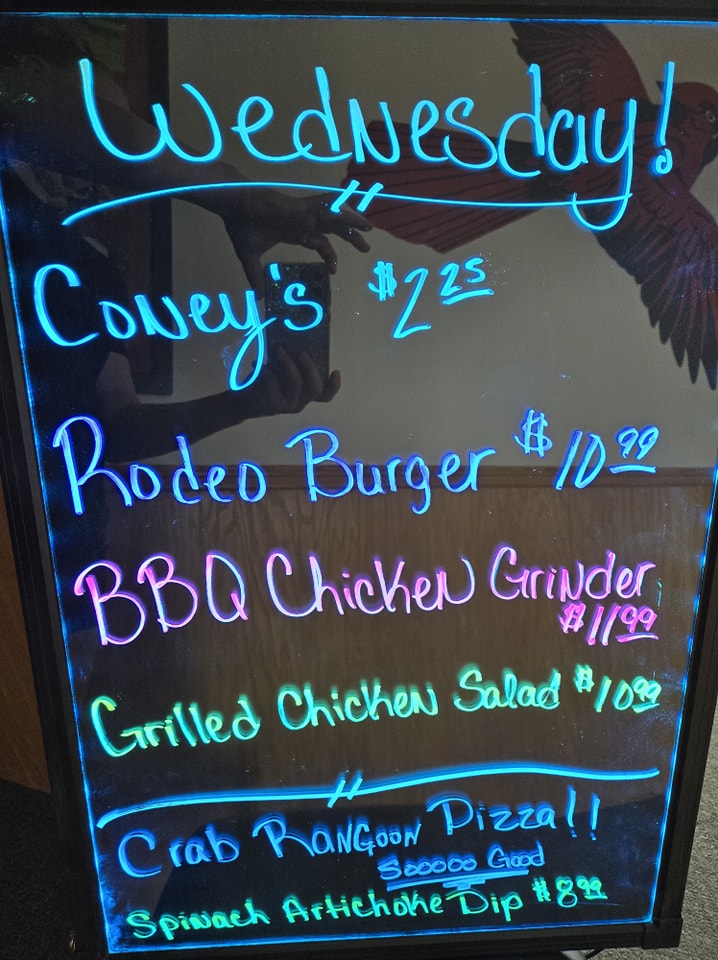 Wednesday!
Coney's $2.25
Rodeo Burger $10.99
BBQ Chicken Grinder
$11.99
Grilled Chicken Salad $10.99
Crab Rangoon Pizza!!
Sooooo Good
Spinach Artichoke Dip $8.99